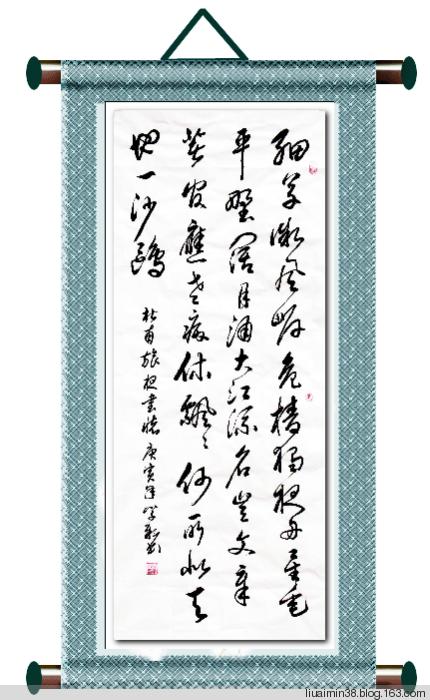 細草微風岸危檣獨夜舟星垂
平野闊月涌大江流名豈文章
著官應老病休飄〻何所似天
地一沙鷗
杜甫旅夜書懷庚寅年
liuaimin38.blog.163.com